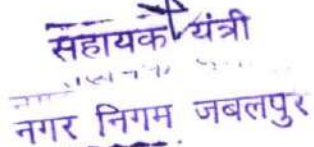 सहायक यंत्री
नगर निगम जबलपुर